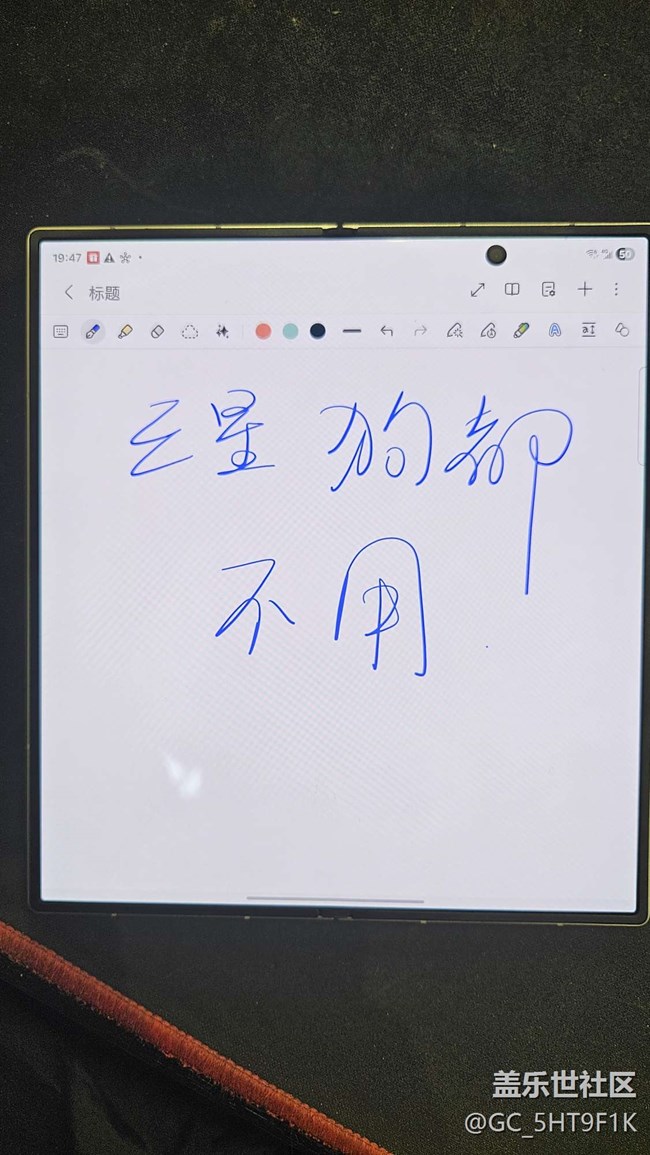 19:47
标题
三星狗都
不用
盖乐世社区
@GC_5HT9F1K